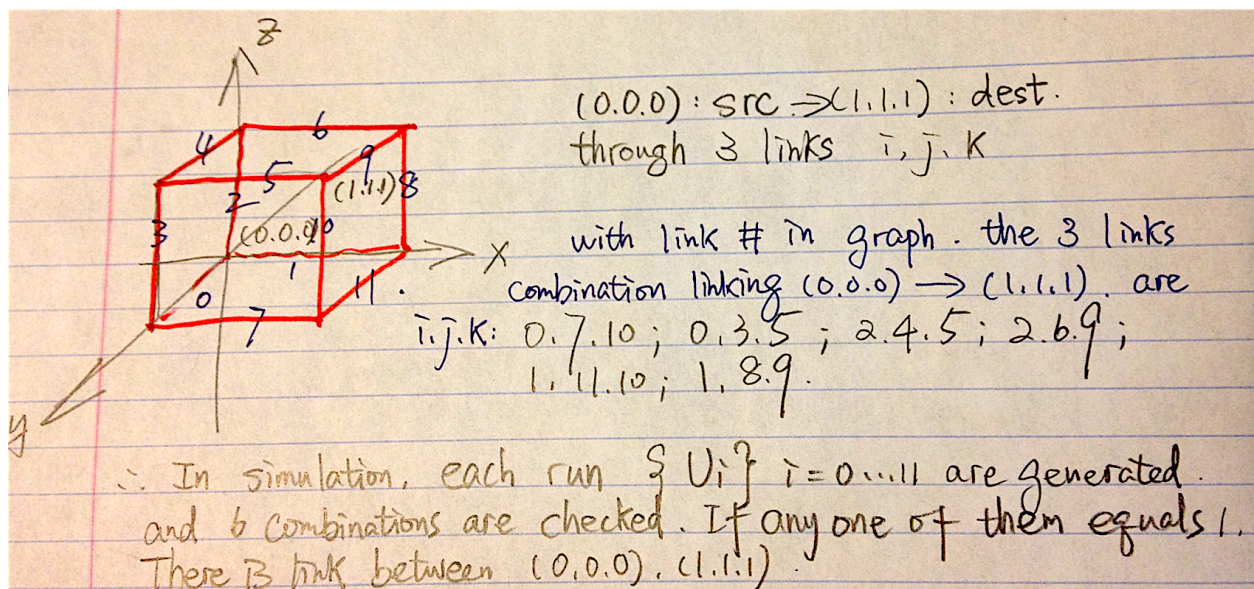 z
6
4
9
5
(1.1.1) 8
2
3
(0.0.0) 10
X
1
0
11.
7
y
(0.0.0) : src → (1.1.1) : dest.
through 3 links i, j. K
with link # in graph. the 3 links
combination linking (0.0.0) → (1.1.1). are
i.j.K: 0.7.10 ; 0.3.5 ; 2.4.5 ; 2.6.9 ;
1. 11.10 ; 1. 8.9.
∴ In simulation, each run {Ui} i=0...11 are generated.
and 6 combinations are checked. If any one of them equals 1.
There is link between (0.0.0). (1.1.1)